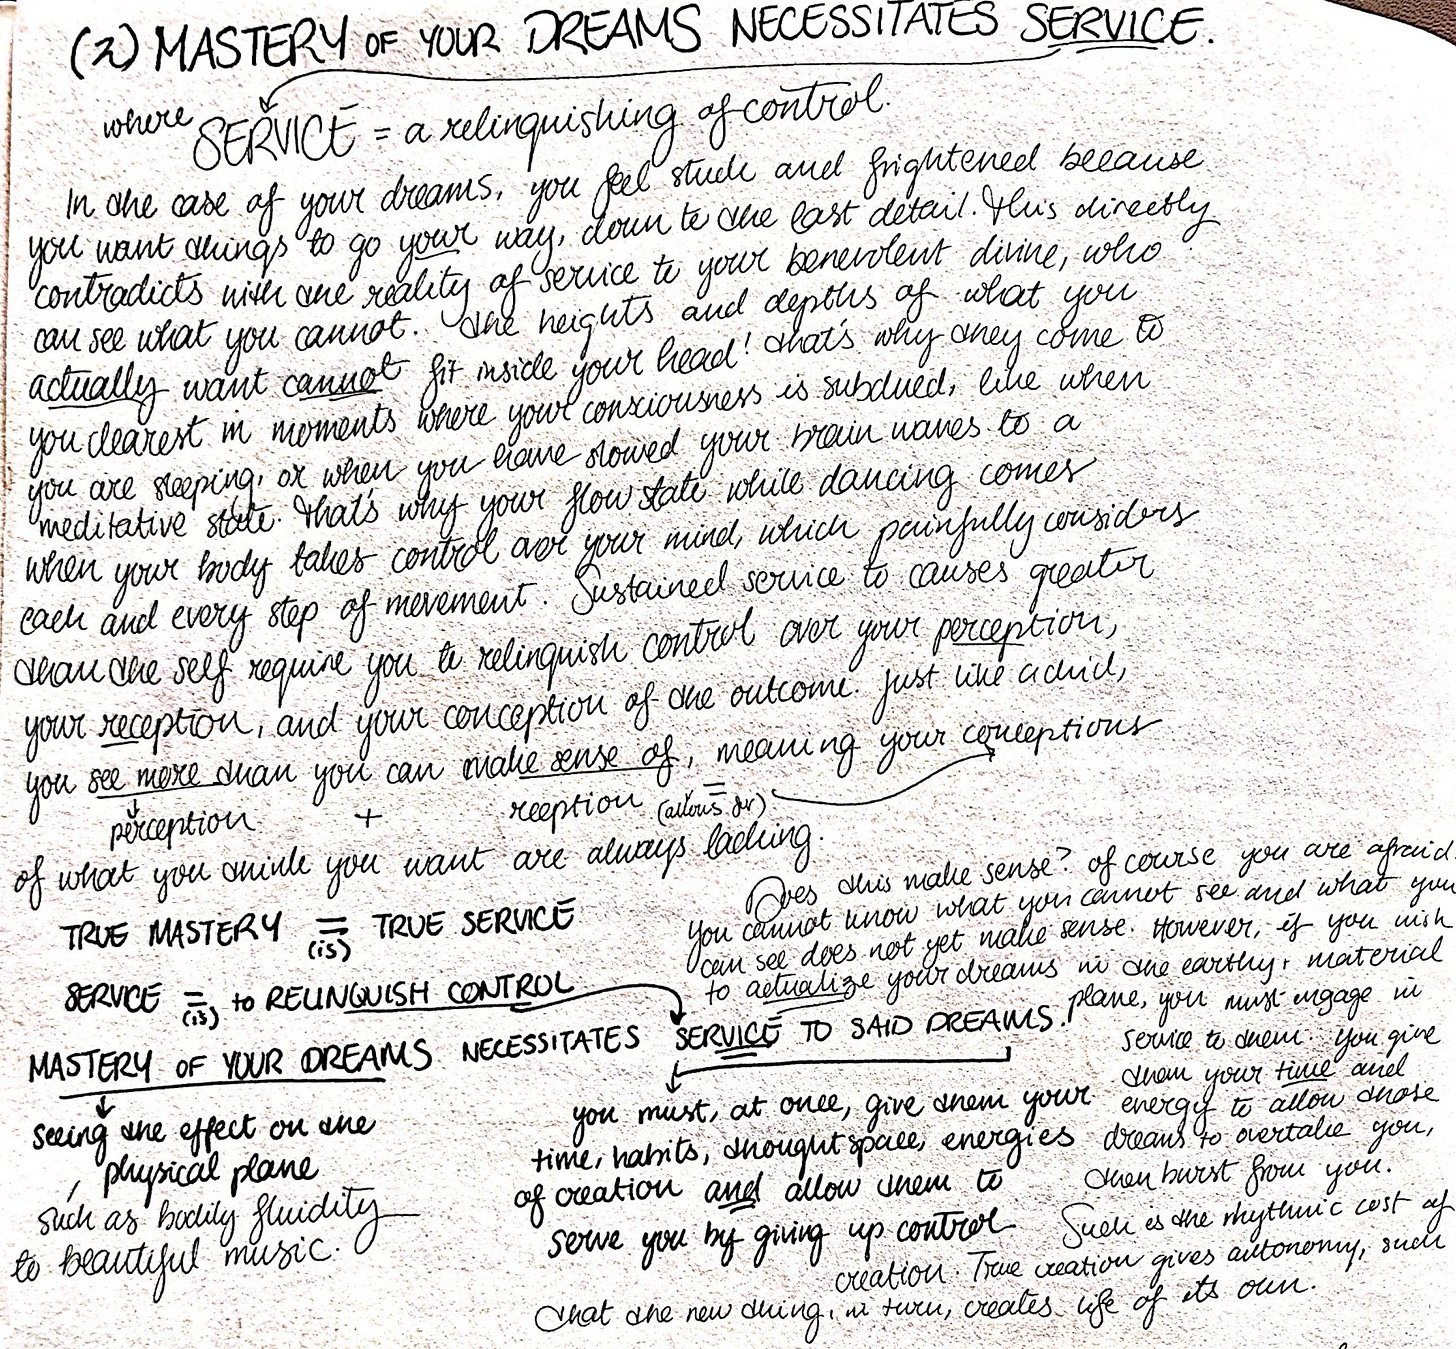 (2) MASTERY OF YOUR DREAMS NECESSITATES SERVICE.
where SERVICE = a relinquishing of control.
In the case of your dreams, you feel stuck and frightened because
you want things to go your way, down to the last detail. This directly
contradicts with the reality of service to your benevolent divine, who
can see what you cannot. The heights and depths of what you
actually want cannot fit inside your head! That's why they come to
you clearest in moments where your consciousness is subdued, like when
you are sleeping, or when you have slowed your brain waves to a
meditative state. That's why your flow state while dancing comes
when your body takes control over your mind, which painfully considers
each and every step of movement. Sustained service to causes greater
than the self require you to relinquish control over your perception,
your reception, and your conception of the outcome. Just like a child,
you see more than you can make sense of, meaning your conceptions
perception + reception (allows for)
of what you think you want are always lacking.
TRUE MASTERY = (is) TRUE SERVICE
SERVICE = (is) to RELINQUISH CONTROL
MASTERY OF YOUR DREAMS NECESSITATES SERVICE TO SAID DREAMS.
seeing the effect on the
physical plane
, such as bodily fluidity
to beautiful music.
you must, at once, give them your
time, habits, thoughtspace, energies
of creation and allow them to
serve you by giving up control
Does this make sense? Of course you are afraid
You cannot know what you cannot see and what you
can see does not yet make sense. However, if you wish
to actualize your dreams in the earthy, material
plane, you must engage in
service to them. You give
them your time and
energy to allow those
dreams to overtake you,
then burst from you.
Such is the rhythmic cost of
creation. True creation gives autonomy, such
that the new thing, in turn, creates life of its own.